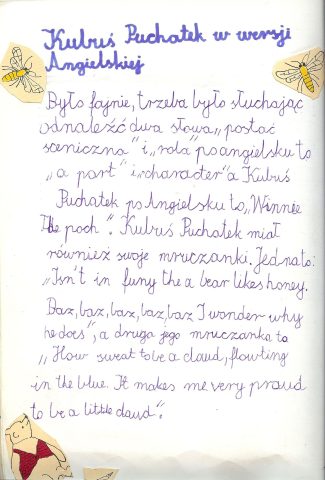 Kubuś Puchatek w wersji
Angielskiej
Było fajnie, trzeba było słuchając
odnaleźć dwa słowa „postać
sceniczna" i „rola" po angielsku to
„a part" i „character" a Kubuś
Puchatek po Angielsku to „Winnee
the pooh". Kubuś Puchatek miał
również swoje mruczanki. Jedna to:
„Isn't in funy the a bear likes honey.
Baz, baz, baz, baz, baz I wonder why
he does", a druga jego mruczanka to
„How sweat to be a claud, flowting
in the blue. It makes me very proud
to be a little claud".